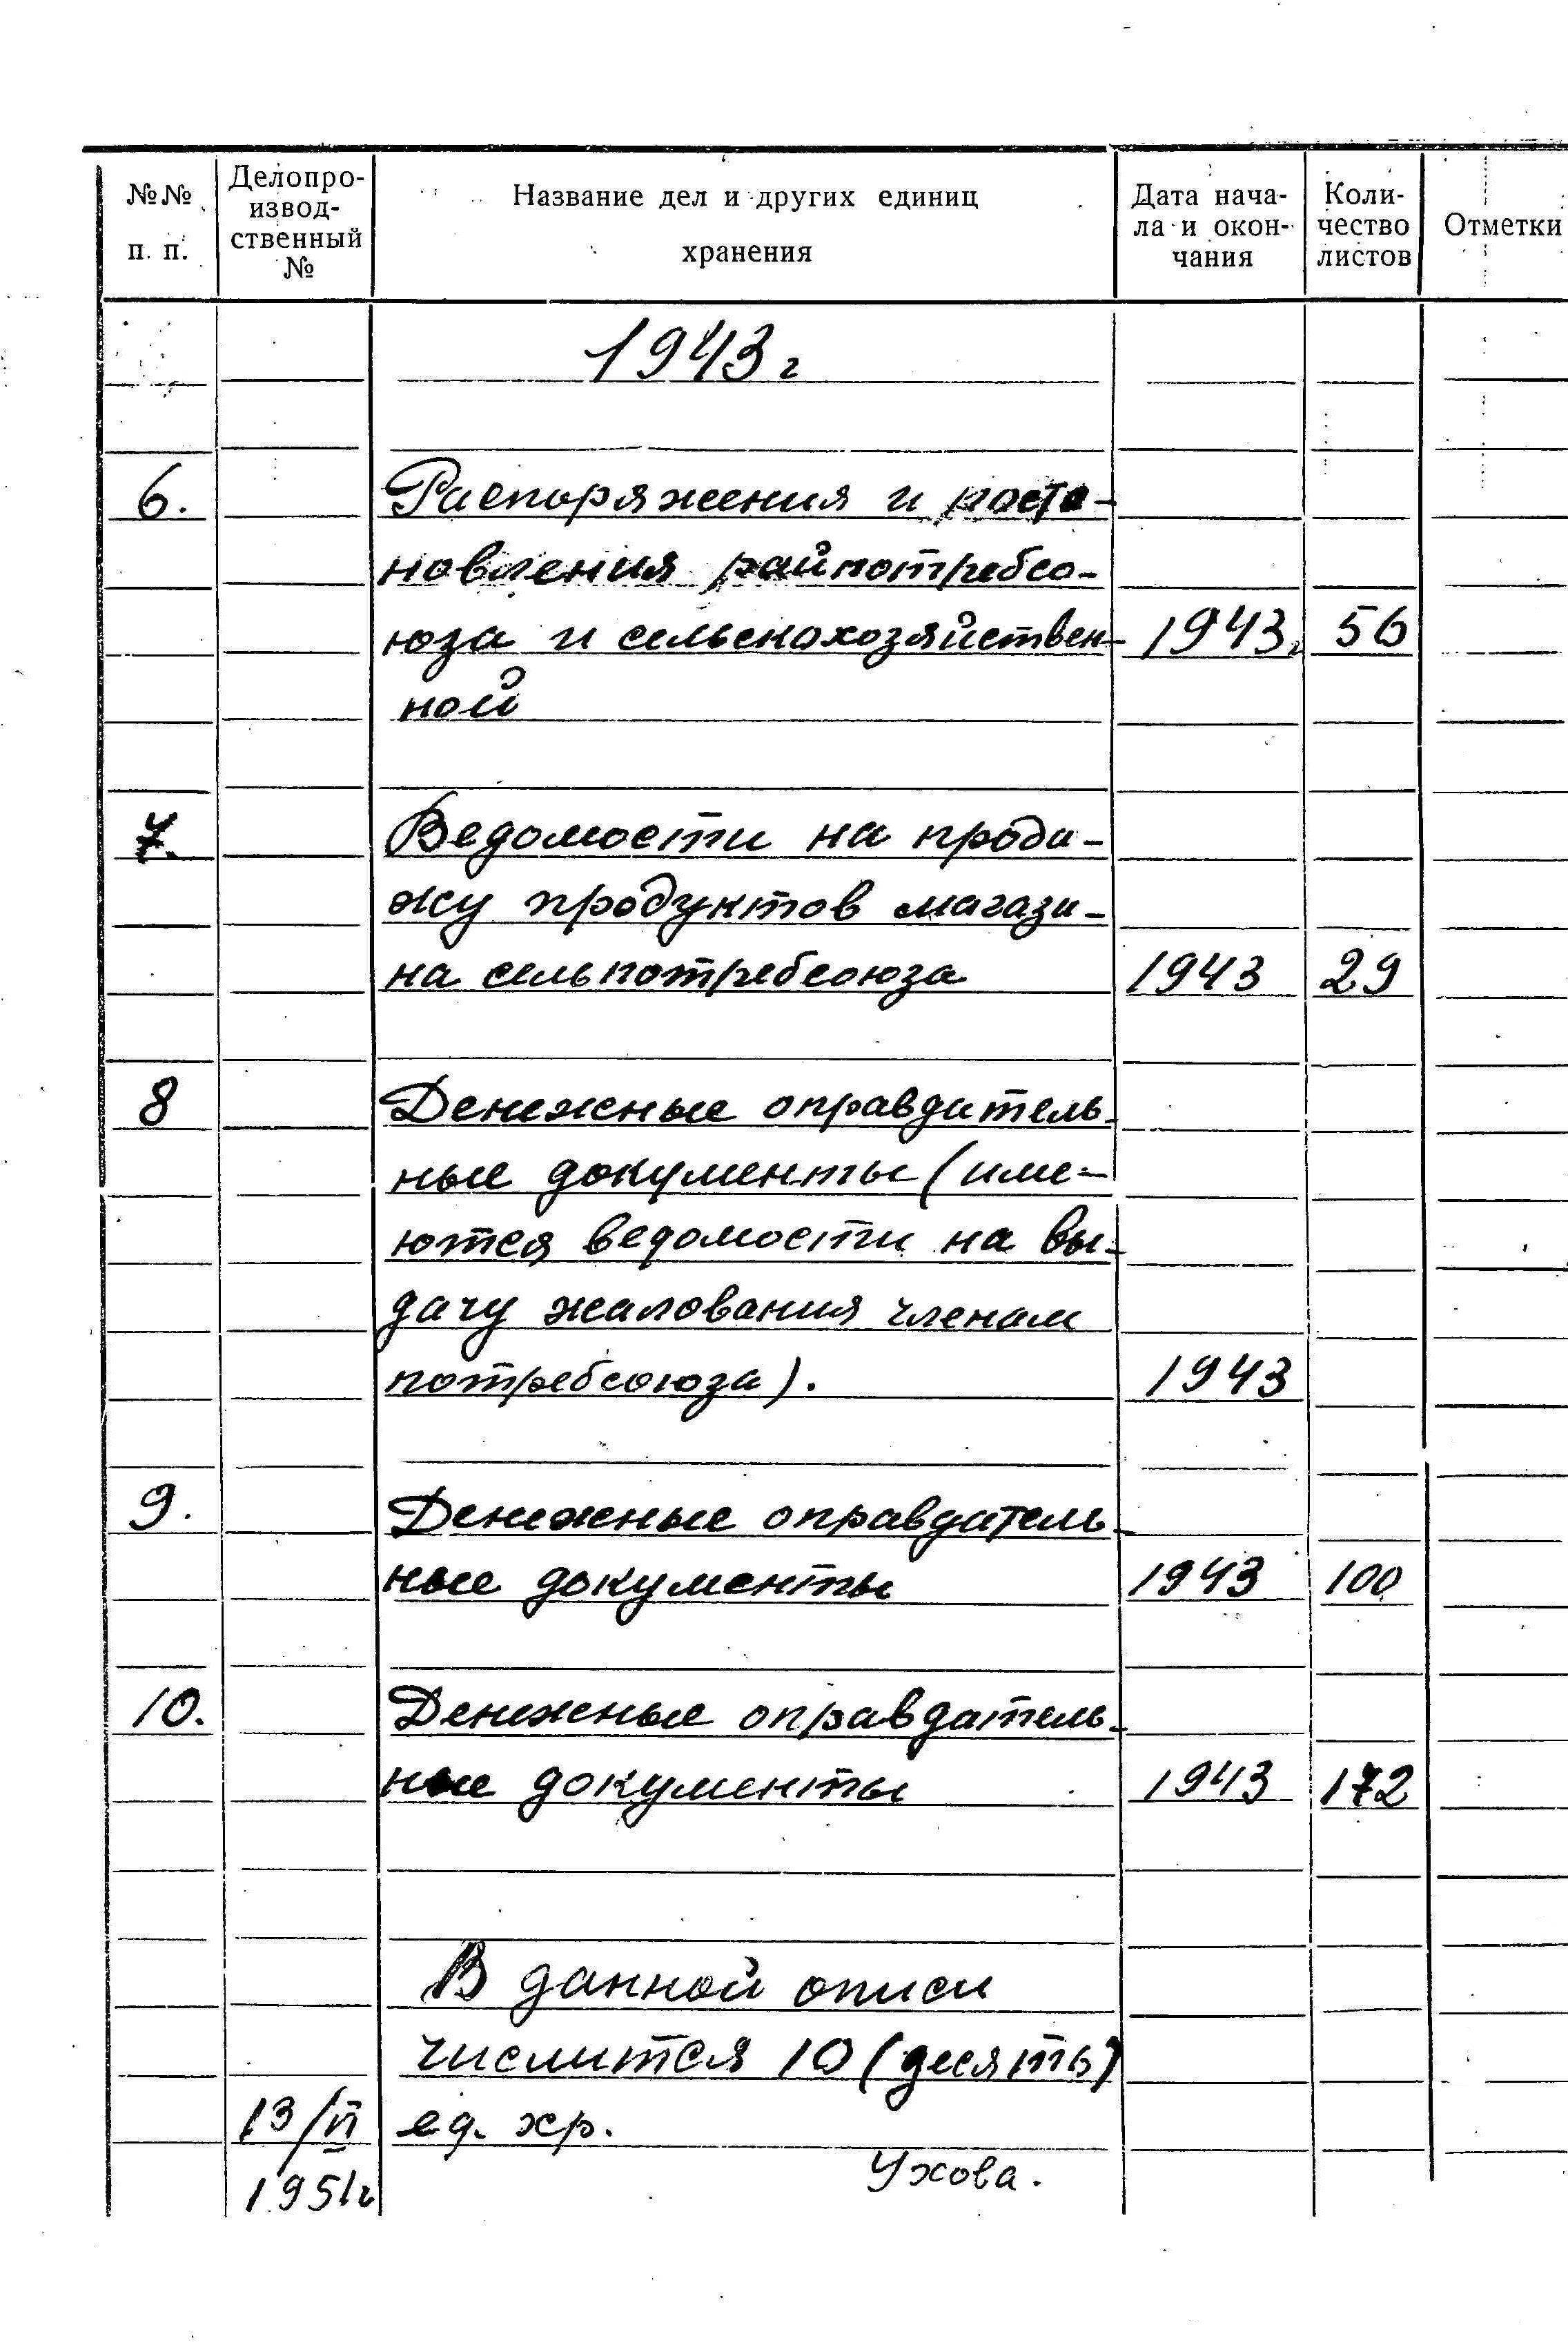 №№ п. п.
Делопро-
извод-
ственный
№
Название дел и других единиц
хранения
Дата нача-
ла и окон-
чания
Коли-
чество
листов
Отметки
1943 г
6. Распоряжения и поста-
новления райпотребсо-
юза и сельскохозяйствен- 1943г 56
ной
7. Ведомости на прода-
жу продуктов магази-
на сельпотребсоюза 1943 29
8 Денежные оправдитель-
ные документы (име-
ются ведомости на вы-
дачу жалования членам
потребсоюза). 1943
9. Денежные оправдатель-
ные документы 1943 100
10. Денежные оправдатель-
ные документы 1943 172
В данной описи
числится 10 (десять)
13/VI ед. хр.
1951г Ухова.